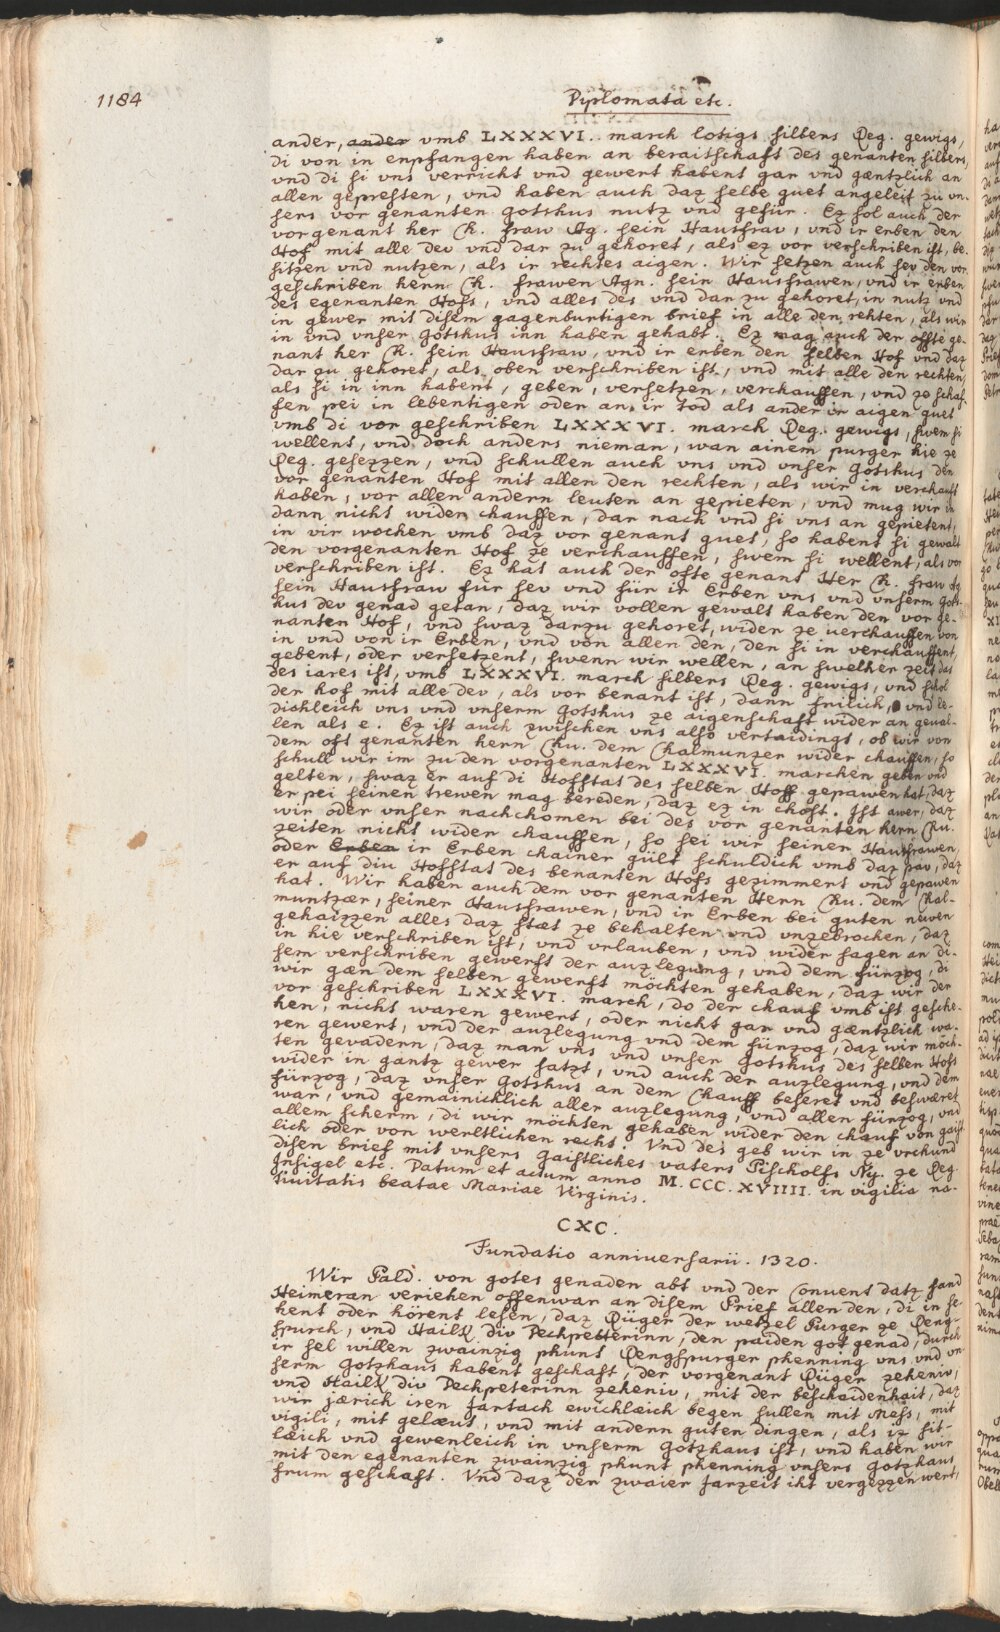 1184
Diplomata etc.
ander, ander vmb LXXXVI. march lotigs silbers Reg. gewigs,
di von in enpfangen haben an beraitschaft des genanten silbers,
vnd di si vns verricht vnd gewert habent gar vnd gæntzlich an
allen gepresten, vnd haben auch daz selbe guet angeleit zu vn-
sers vor genanten Gotshus nutz vnd gefür. Ez sol auch der
vorgenant her Ch. fraw Ag. sein Hausfrav, vnd ir erben den
Hof mit alle dev vnd dar zu gehoret, als ez vor verschriben ist, be-
sitzen vnd nutzen, als ir rechtes aigen. Wir setzen auch sev den vor
geschriben hern Ch. frawen Agn. sein Hausfrawen, vnd ir erben
des egenanten Hofs, vnd alles des vnd dar zu gehoret, in nutz vnd
in gewer mit disem gagenburtigen brief in alle den rehten, als wir
in vnd vnser Gotshus inn haben gehabt. Ez mag auch der offte ge-
nant her Ch. sein Hausfraw, vnd ir erben den selben Hof vnd daz
dar zu gehoret, als oben verschriben ist, vnd mit alle den rechten,
als si in inn habent, geben, versetzen, verchauffen, vnd ze schaf-
fen pei in lebentigen oder an ir tod als ander ir aigen guet
vmb di vor geschriben LXXXVI. march Reg. gewigs, swem si
wellent, vnd doch anders nieman, wan ainem purger hie ze
Reg. gesezzen, vnd schullen auch vns vnd vnser Gotshus den
vor genanten Hof mit allen den rechten, als wir in verchauft
haben, vor allen andern leuten an gepieten, vnd mug wir in
dann nicht wider chauffen, dar nach vnd si vns an gepietent,
in vir wochen vmb daz vor genant guet, so habent si gewalt
den vorgenanten Hof ze verchauffen, swem si wellent, als vor
verschriben ist. Ez hat auch der ofte genant Her Ch. fraw Ag
sein Hausfraw für sev vnd für ir Erben vns vnd vnserm Gots-
hus dev genad getan, daz wir vollen gewalt haben den vor ge-
nanten Hof, vnd swaz darzu gehoret, wider ze verchauffen von
in vnd von ir Erben, vnd von allen den, den si in verchauffent,
gebent, oder versetzent, swenn wir wellen, an swelher zeit das
des iares ist, vmb LXXXVI. march silbers Reg. gewigs, vnd schol
der hof mit alle dev, als vor benant ist, dann frilich, vnd le-
dichleich vns vnd vnserm Gotshus ze aigenschaft wider an geual-
len als e. Ez ist auch zwischen vns also vertaidingt, ob wir von
dem oft genanten hern Chu. dem Chalmunzer wider chauffen, so
schull wir im zu den vorgenanten LXXXVI. marchen geben vnd
gelten, swaz er auf di Hofstat des selben Hoff gepawen hat, daz
er pei seinen trewen mag bereden, daz ez in chost. Ist awer, daz
wir oder vnser nachchomen bei des vor genanten hern Chu.
zeiten nicht wider chauffen, so sei wir seiner Hausfrawen,
oder Erben ir Erben chainer gült schuldich vmb daz paw, daz
er auf diu Hofstat des benanten Hofs gezimmert vnd gepawen
hat. Wir haben auch dem vor genanten Hern Chu. dem Chal-
muntzær, seiner Hausfrawen, vnd ir Erben bei guten newen
gehaizzen alles daz stæt ze behalten vnd vnzebrochen, daz
in hie verschriben ist, vnd vrlauben, vnd wider sagen an di-
sem verschriben gewerft der auzlegung, vnd dem fürzog, di
wir gæn dem selben gewerft möchten gehaben, daz wir der
vor geschriben LXXXVI. march, do der chauf vmb ist gesche-
hen, nicht waren gewert, oder nicht gar vnd gæntzlich wa-
ren gewert, vnd der auzlegung vnd dem fürzog, daz wir möch-
ten gevadern, daz man vns vnd vnser Gotshus des selben Hofs
wider in gantz gewer satzt, vnd auch der auzlegung, vnd dem
fürzog, daz vnser Gotshus an dem Chauff besert vnd beswæret
wær, vnd gemainichlich aller auzlegung, vnd allen fürzog, vnd
allem scherm, di wir möchten gehaben wider den chauf von gaist
lich oder von werltlichen recht. Vnd des geb wir in ze vrchund
disen brief mit vnsers gaistliches vaters Pischolfs Ny. ze Reg.
Insigel etc. Datum et actum anno M. CCC. XVIIII. in vigilia na-
tiuitatis beatae Mariae Virginis.
CXC.
Fundatio anniuersarii. 1320.
Wir Pald. von gotes genaden abt vnd der Conuent datz sand
Heimeran veriehen offenwar an disem Prief allen den, di in se-
hent oder hörent lesen, daz Rüger der wetzel Purger ze Reng-
spurch, vnd Hailk div Pechpetterinn, den paiden got genad, durch
ir sel willen zwainzig phunt Rengspurger phenning vns vnd vn-
serm Gotzhaus habent geschaft, der vorgenant Rüger zeheniv,
vnd Hailk div Pechpeterinn zeheniv, mit der bescheidenhait, daz
wir jærich iren jartach ewichlæich begen sullen mit Mess, mit
vigili, mit gelæut, vnd mit andern guten dingen, als iz sit-
læich vnd gewenleich in vnserm Gotzhaus ist, vnd haben wir
mit den egenanten zwainzig phunt phenning vnsers Gotzhaus
frum geschaft. Vnd daz der zwaier jarzeit iht vergezzen wert,